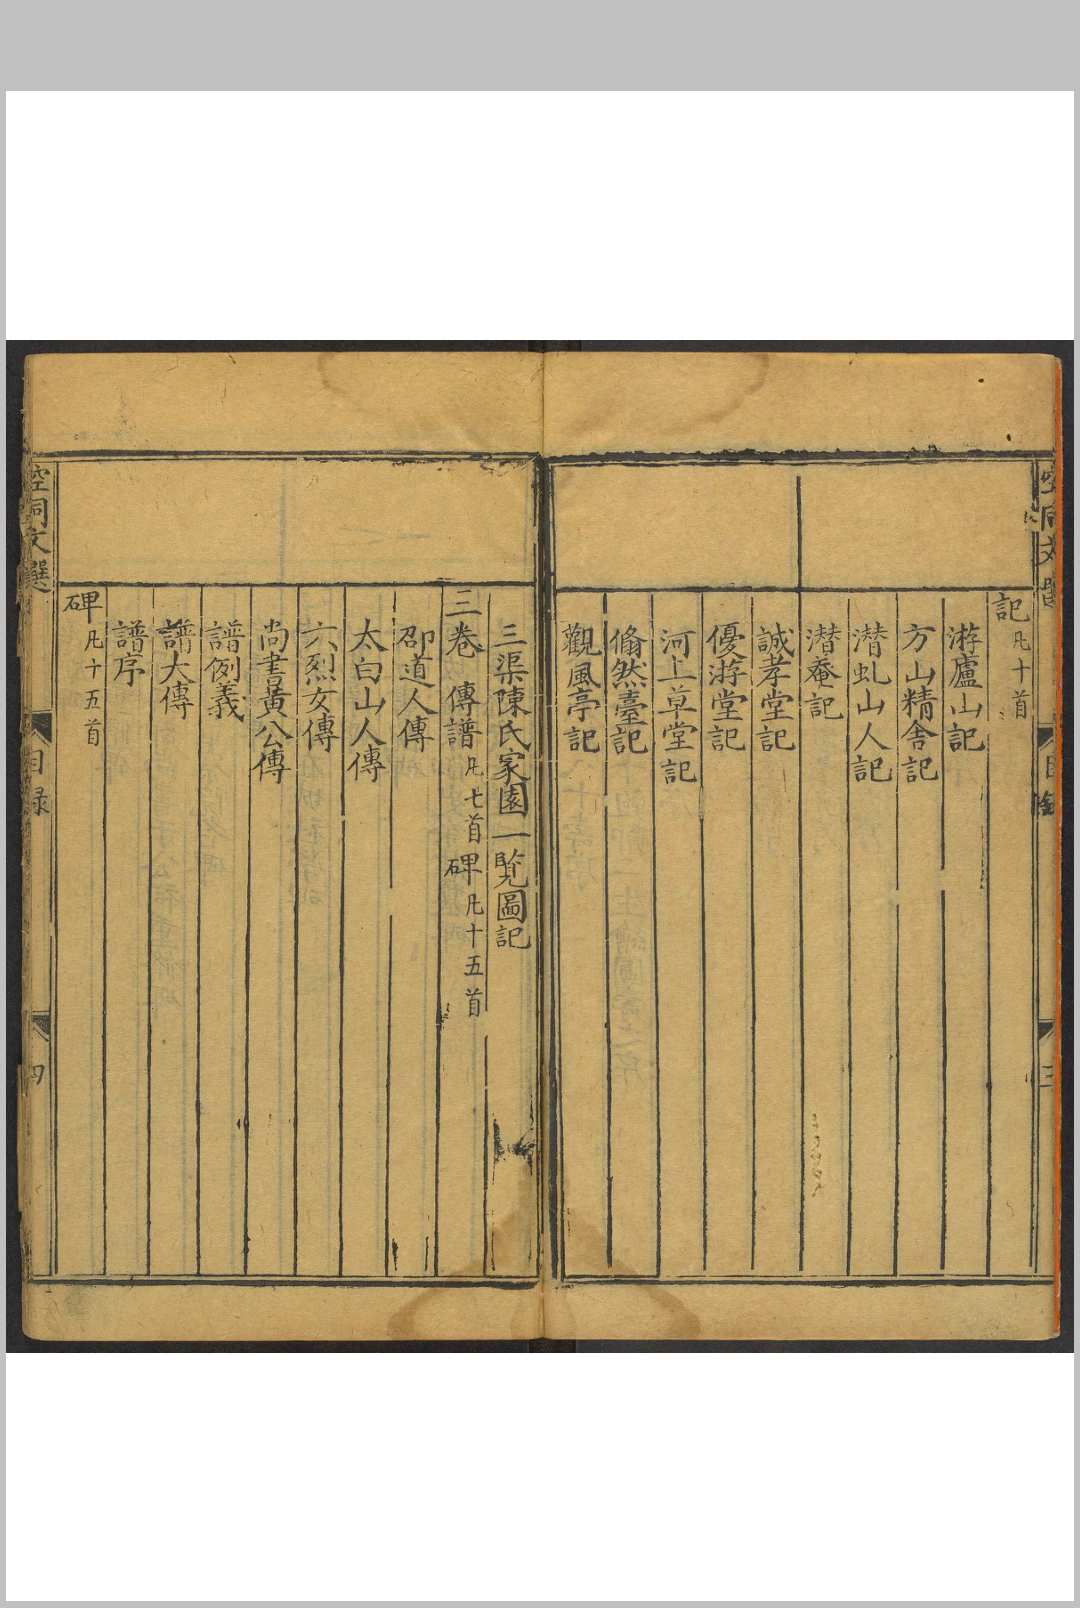 記凡十首
游廬山記
方山精舍記
潛虬山人記
潛菴記
誠孝堂記
優游堂記
河上草堂記
翛然臺記
觀風亭記
三渠陳氏家園一覽圖記
三卷 傳譜凡七首碑凡十五首
邵道人傳
太白山人傳
六烈女傳
尚書黃公傳
譜例義
譜大傳
譜序
碑凡十五首
空同文選 目錄 三
空同文選 目錄 四